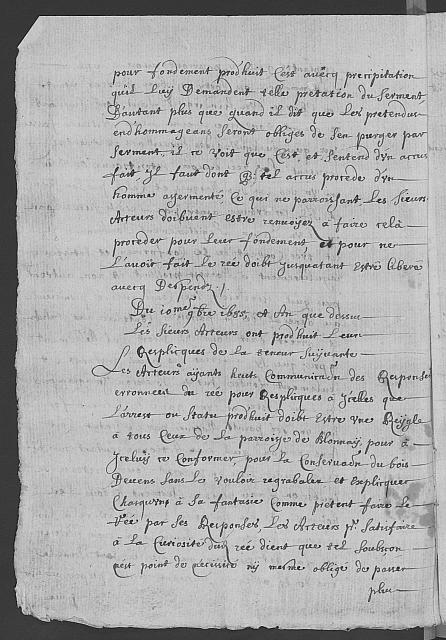 pour fondement prodhuit C'est avecq precipitation
quil Luy Demandent telle pretation du serment
D'autant plus que quand il dit que Les pretendus
endhommageans seront obliges de sen purger par
serment, il ce voit que C'est et sentend d'vn accus
fait Jl faut dont q; tel accus procede d'vn
homme assermenté Ce qui ne parroissant Les sieurs
Acteurs doibuent estre renuoyez a faire celà
proceder pour leur fondement, et pour ne
L'auoir fait Le réé doibt Jusquatant Estre liberé
auecq Despends ./.
Du 10me 9bre 1655, et An que dessus
Les sieurs Acteurs ont prodhuit Leur
Resplicques de la teneur suijuante
Les Acteurs aijants heuts Communica͠on des Responses
erronnées du réé pour Resplicques à Jcelles que
L'arrest ou Statu prodhuit doibt Estre vne Reigle
à tous Ceux de la parroisse de Blonnaÿ, pour à
Jceluÿ ce Conformer pour la Conserua͠on du bois
Deuens sans le vouloir regrabaler et Explicquer
Chascung à sa fantasie Comme prétent faire Le
Réé par ses Responses, Les Acteurs pr. satisfaire
à la Curiosité dud réé dient que tel soubscon
nest point de necessité nÿ mesme obligé de passer
plus